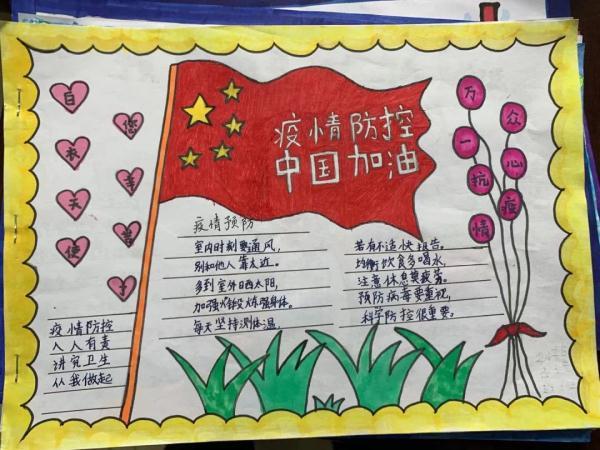 白衣天使
您辛苦了
疫情防控
中国加油
万众一心
抗疫情
疫情预防
室内时刻要通风,
别和他人靠太近。
多到室外晒太阳,
加强锻炼强身体。
每天坚持测体温,
若有不适快报告。
均衡饮食多喝水,
注意休息莫疲劳。
预防病毒要重视,
科学防控很重要。
疫情防控
人人有责
讲究卫生
从我做起